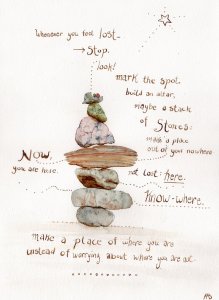 Whenever you feel lost—
→ Stop.
look!
mark the spot
build an altar,
maybe a stack
of Stones:
make a place
out of your nowhere
Now,
you are here.
not lost: here.
Know-where.
make a place of where you are
instead of worrying about where you are not.